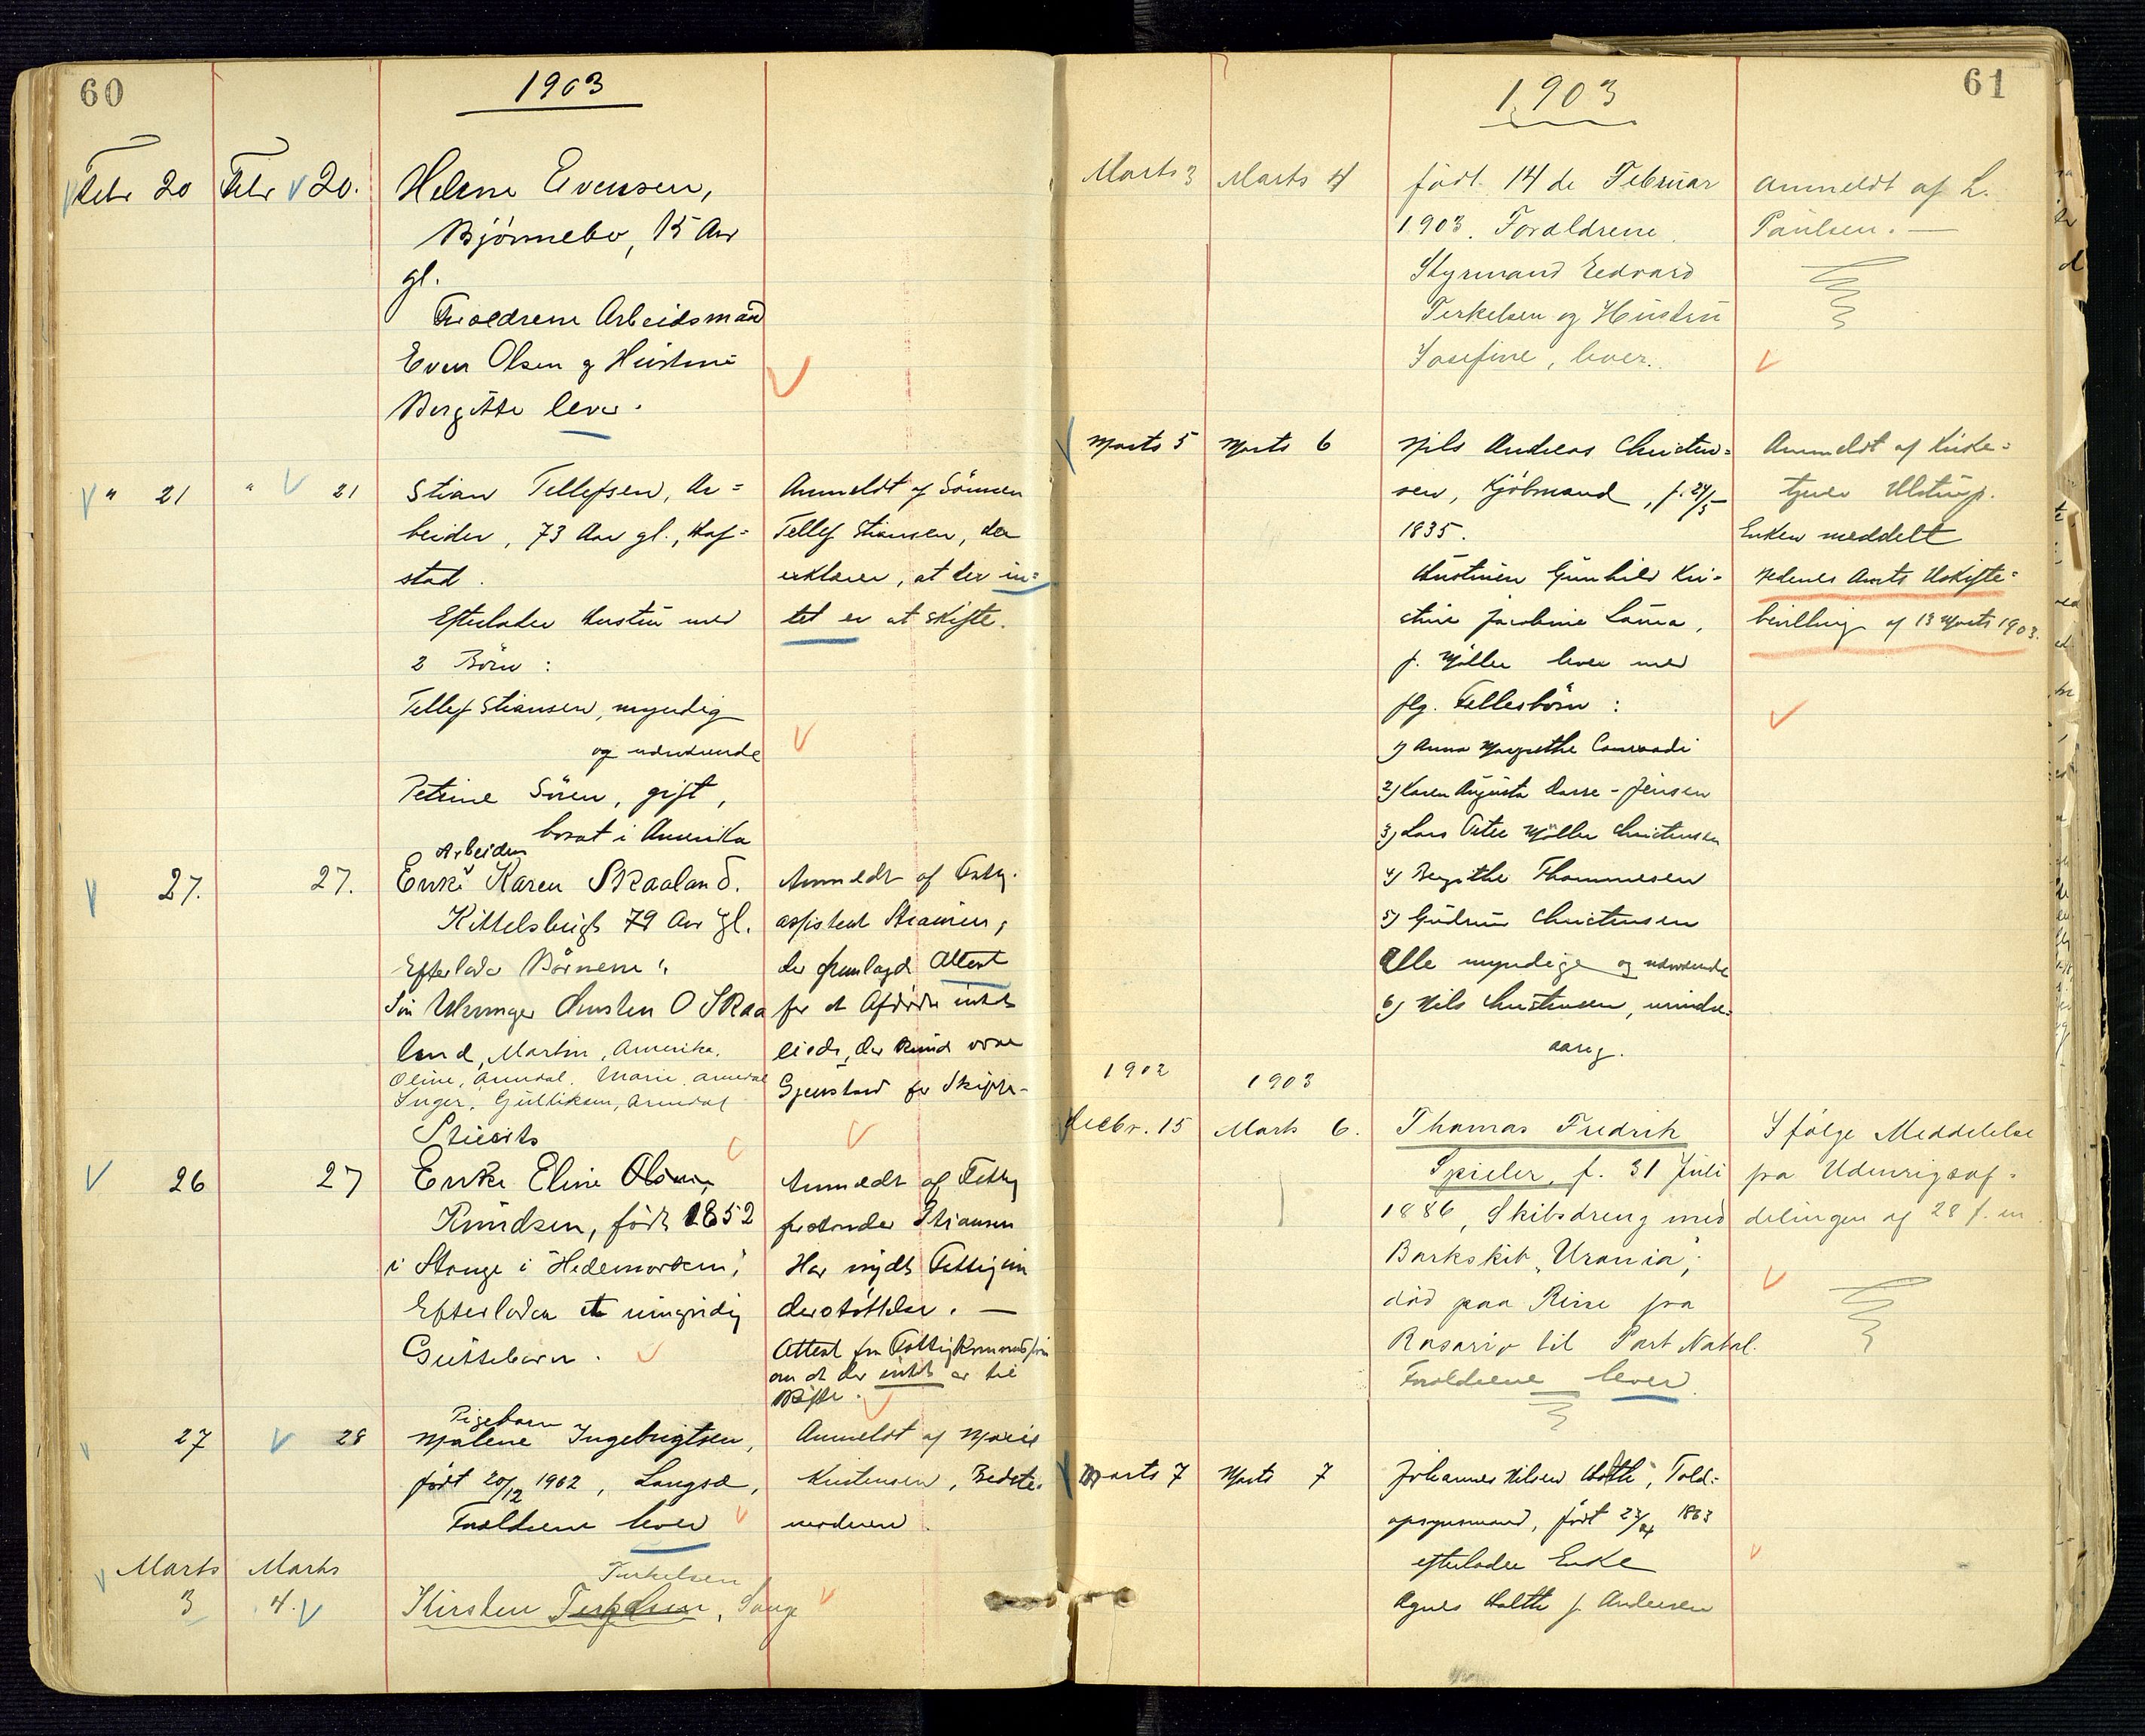 60
1903
Febr 20 Febr 20. Helene Evensen,
Bjørnnebo, 15 Aar
gl.
Foraeldrene Arbeidsmand
Even Olsen og Hustru
Bergitte lever.
" 21 " 21 Stian Tellefsen, Ar=
beider, 73 Aar gl., Haf=
stad.
Efterlader Hustru med
2 Børn:
Tellef Stiansen, myndig
og nærværende
Petrine Sören, gift,
bosat i Amerika
Anmeldt af Sönnen
Tellef Stiansen, der
erklærer, at der in=
tet er at skifte.
27. 27. Arbeider
Enke Karen Skaaland.
Kittelsbugt 79 Aar gl.
Efterlader Børnene:
Sön Uhrmager Aunsten O Skaa
land, Martin, Amerika,
Oline, Arendal. Marie, Arendal
Inger, Gulliksen, Arendal
Anmeldt af Fattig.
assistent Stiansen,
der fremlagde Attest
for at Afdøde intet
eiede, der kunde være
Gjenstand for Skifte-
26 27 Stuerts
Enke Eline Olsen,
Knudsen, født 1852
i Stange i Hedemarken;
Efterlader et umyndig
Guttebarn.
Anmeldt af Fattig
forstander Stiansen
Har nydt Fattigun
derstøttelse. —
Attest fra Fattigkommissionen
om at der intet er til
Skifte.
27 28 Pigebarn
Malene Ingebrigtsen,
født 20/12 1902, Langsæ,
Forældrene lever
Anmeldt af Marie
Kristensen, Bedste=
moderen.
Marts Marts
3 4. Terkelsen
Kirsten, Songe
61
1903
Marts 3 Marts 4 født 14de Februar
1903. Forældrene
Styrmand Edvard
Terkelsen og Hustru
Josefine, lever.
Anmeldt af L.
Paulsen. —
Marts 5 Marts 6 Nils Andreas Christen=
sen, Kjöbmand, f. 24/5-
1835.
Hustruen Gunhild Kri=
stine Jacobine Laura,
f. Möller lever med
flg. Fællesbörn:
1) Anna Margrethe Conradi
2) Karen Augusta Aarre-Jensen
3) Lars Peter Möller Christensen
4) Bergithe Thommesen
5) Gudrun Christensen
Alle myndige og nærværende
6) Nils Christensen, mindre=
aarig.
Anmeldt af Kirke=
tjener Ulstrup.
Enken meddelt
Nedenes Amts Uskifte=
bevilling af 13 Marts 1903.
1902 1903
Decbr. 15 Marts 6. Thomas Fredrik
Spieler, f. 31 Juli
1886, Skibsdreng med
Barkskib „Urania";
död paa Reise fra
Rosario til Port Natal.
Forældrene lever.
I følge Meddelelse
fra Udenrigsaf=
delingen af 28 f. m
Marts 7 Marts 7 Johannes Nilsen Holth, Told=
opsynsmand, født 23/4 1863
efterlader Enke
Agnes Holth f. Andersen